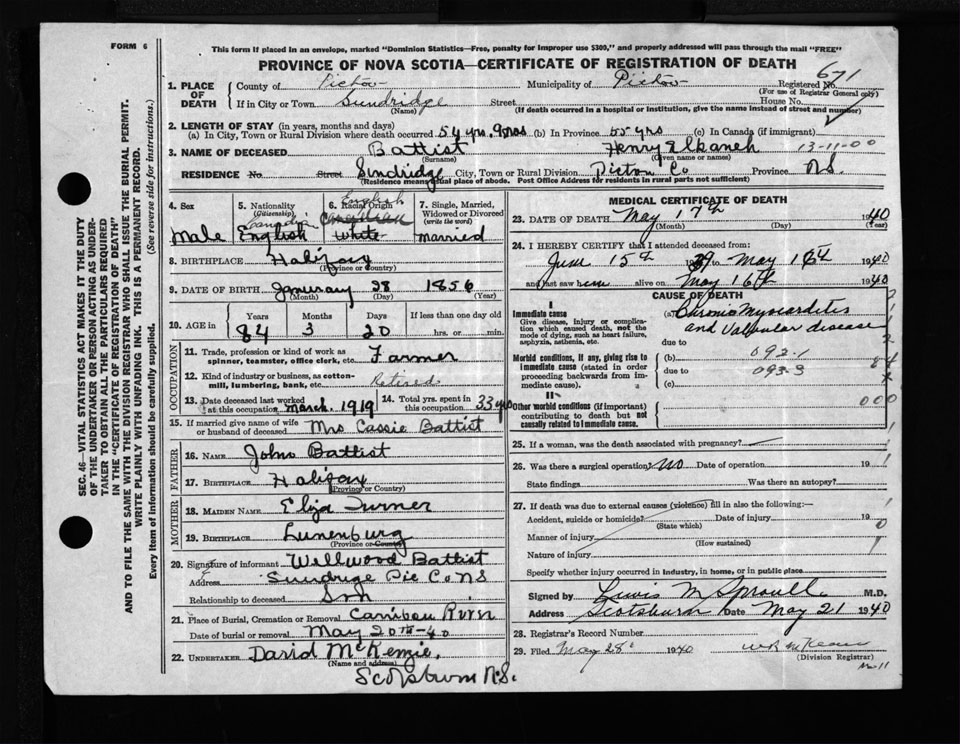 FORM 6
This form if placed in an envelope, marked "Dominion Statistics—Free, penalty for improper use $300," and properly addressed will pass through the mail "FREE"
PROVINCE OF NOVA SCOTIA—CERTIFICATE OF REGISTRATION OF DEATH
SEC. 46—VITAL STATISTICS ACT MAKES IT THE DUTY
OF THE UNDERTAKER OR PERSON ACTING AS UNDER-
TAKER TO OBTAIN ALL THE PARTICULARS REQUIRED
IN THE "CERTIFICATE OF REGISTRATION OF DEATH"
AND TO FILE THE SAME WITH THE DIVISION REGISTRAR WHO SHALL ISSUE THE BURIAL PERMIT.
WRITE PLAINLY WITH UNFADING INK. THIS IS A PERMANENT RECORD.
Every item of information should be carefully supplied. (See reverse side for instructions.)
1. PLACE OF DEATH County of Pictou Municipality of Pictou Registered No. 671
(For use of Registrar General only)
If in City or Town Sundridge Street House No.
(Name) (If death occurred in a hospital or institution, give the name instead of street and number)
2. LENGTH OF STAY (in years, months and days)
(a) In City, Town or Rural Division where death occurred 54 yrs. 9 mos (b) In Province 55 yrs (c) In Canada (if immigrant)
3. NAME OF DECEASED Battist Henry Elkaneh 13-11-00
(Surname) (Given name or names)
RESIDENCE No. Street Sundridge City, Town or Rural Division Pictou Co Province N.S.
(Residence means usual place of abode. Post Office Address for residents in rural parts not sufficient)
4. Sex Male
5. Nationality (Citizenship) Canadian English
6. Racial Origin English Canadian White
7. Single, Married, Widowed or Divorced (write the word) Married
8. BIRTHPLACE Halifax
(Province or Country)
9. DATE OF BIRTH January 28 1856
(Month) (Day) (Year)
10. AGE in Years 84 Months 3 Days 20 If less than one day old hrs. or min.
OCCUPATION
11. Trade, profession or kind of work as spinner, teamster, office clerk, etc. Farmer
12. Kind of industry or business, as cotton-mill, lumbering, bank, etc. Retired
13. Date deceased last worked at this occupation March. 1919 14. Total yrs. spent in this occupation 33 yrs
15. If married give name of wife or husband of deceased Mrs Cassie Battist
FATHER
16. NAME John Battist
17. BIRTHPLACE Halifax
(Province or Country)
MOTHER
18. MAIDEN NAME Eliza Turner
19. BIRTHPLACE Lunenburg
(Province or Country)
20. Signature of informant Wellwood Battist
Address Sundrige Pic Co NS
Relationship to deceased Son
21. Place of Burial, Cremation or Removal Caribou River
Date of burial or removal May 20th-40
22. UNDERTAKER David McKenzie,
(Name and address)
Scotsburn N.S.
MEDICAL CERTIFICATE OF DEATH
23. DATE OF DEATH May 17th 1940
(Month) (Day) (Year)
24. I HEREBY CERTIFY that I attended deceased from:
June 15th 1939 to May 16th 1940
and last saw him alive on May 16th 1940
CAUSE OF DEATH
I
Immediate cause (a) Chronic Myocarditis and Valvular disease
Give disease, injury or complication which caused death, not the mode of dying, such as heart failure, asphyxia, asthenia, etc.
due to
Morbid conditions, if any, giving rise to immediate cause (stated in order proceeding backwards from immediate cause). (b) 092.1
due to 093.3
(c)
II
Other morbid conditions (if important) contributing to death but not causally related to immediate cause.
000
25. If a woman, was the death associated with pregnancy?
26. Was there a surgical operation? No Date of operation 19
State findings Was there an autopsy?
27. If death was due to external causes (violence) fill in also the following:
Accident, suicide or homicide? Date of injury 19
(State which)
Manner of injury
(How sustained)
Nature of injury
Specify whether injury occurred in industry, in home, or in public place
Signed by Lewis M Sproull M.D.
Address Scotsburn Date May 21 1940
28. Registrar's Record Number
29. Filed May 28 1940
(Division Registrar)
No 11